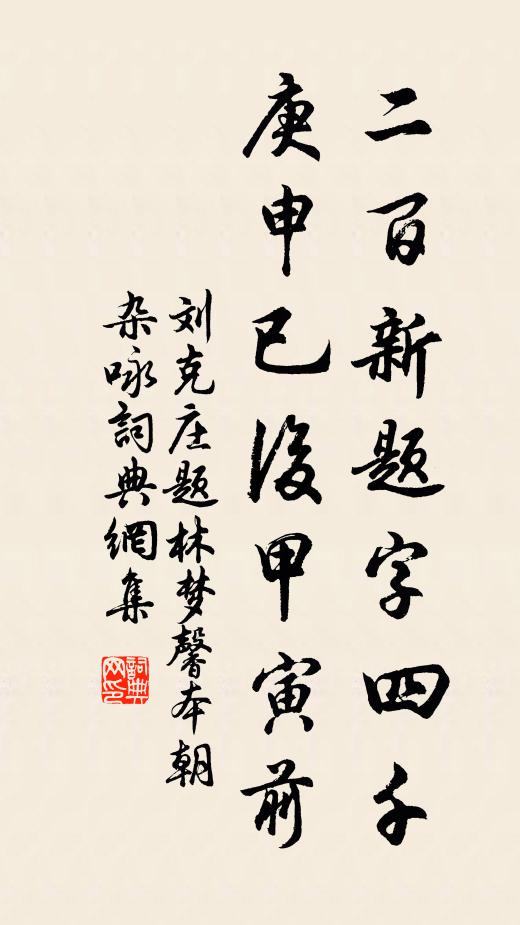 二百新题字四千
庚申已後甲寅前
刘克庄题林梦馨本朝
杂咏詞典網集
詞典网印